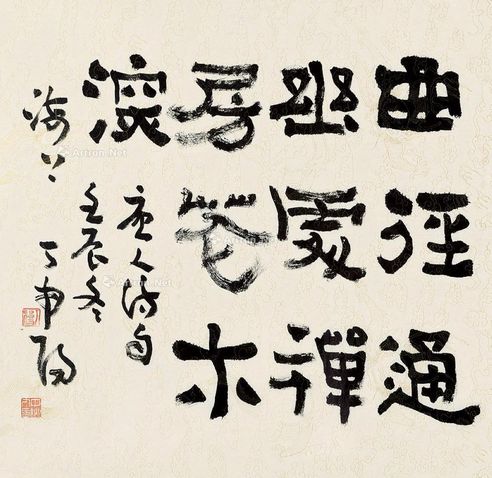 曲徑通
幽處禪
房花木
深
唐人诗句
壬辰冬
海上丁申陽
Artron.Net